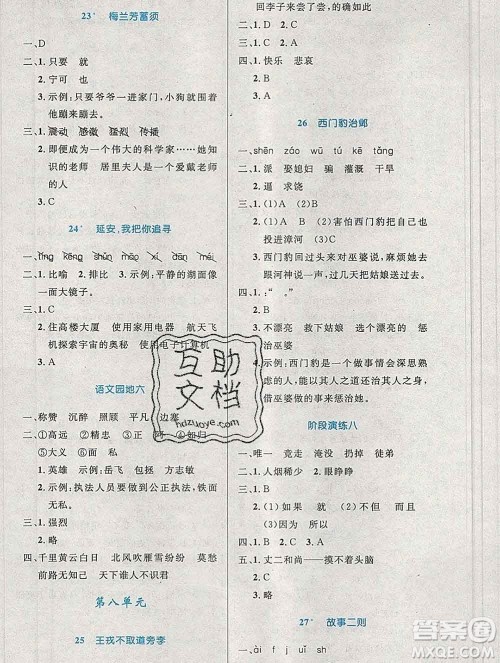 23* 梅兰芳蓄须
一、D
二、1. 只要 就
2. 宁可 也
3. 示例：只要爷爷一进家门，小狗就围着他
三、1. 震动 感激 传播
2. 即便成为一个伟大的科学家……她
知识的老师 居里夫人是一个爱戴老师的
人。
3. C
24* 延安，我把你追寻
二、1. 比喻 2. 排比 3. 示例：平静的湖面像
一面大镜子。
三、1. D
2. 住高楼大厦 使用家用电器 航天飞
机探索宇宙的奥秘 使用电子计算机
语文园地六
一、称赞 沉醉 照顾 平凡 边塞
二、①高远 ②精忠 ③正 阿 ④如归
⑤大义 ⑥面 ⑦正
1. 英雄 示例：岳飞 文天祥
2. 示例：执法人员要做到公正执法，铁面
无私。
三、1. 强烈
2. 略
四、千里黄云白日 北风吹雁雪纷纷 莫愁
前路无知己 天下谁人不识君
第八单元
25 王戎不取道旁李
回李子来尝了尝，的确如此
三、略
四、1. 快乐 悲哀
2. B
3. C
26 西门豹治邺
一、shēn zāo wū tú kē tǎng
二、1. 娶媳妇 淹没 干旱
2. 逼 求饶
三、1. (1)A (2)B
2. (1) (2)害怕西门豹把自己也
扔进漳河 (3)C
3. 西门豹回过头来对巫婆说，麻烦她去
跟河神说一声，过几天把姑娘送去
四、1. : “ 。”
2. B
3. 不漂亮 救下姑娘 不漂亮 惩
治巫婆
4. 示例：西门豹是一个做事情会深思熟
虑的人，他还能以其人之道还治其人之
身，利用巫婆的本事惩治她。
阶段演练八
一、唯一 竞走 淹没 扔掉 徒弟
二、1. 人烟稀少 2. 眼睁睁
三、1. B
2. (1)如果 就 (2)不但 而且
3. C
四、1. A 2. B 3. A
五、丈二和尚——摸不着头脑
六、1. C
2. 略
3. A
27* 故事二则
一、ài f j uǐ sh
互助文档
hdzuoye.com
答案圈